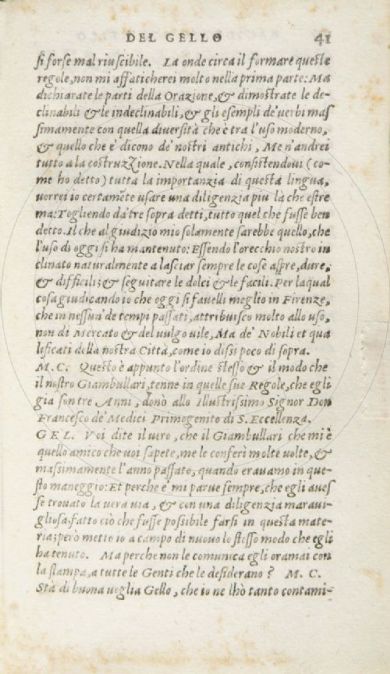 DEL GELLO 41
ſi forſe mal riuſcibile. La onde circa il formare queſte
regole, non mi affaticherei molto nella prima parte: Ma
dichiarate le parti della Orazione, & dimoſtrate le de-
clinabili & le indeclinabili, & gli eſempli de' verbi maſ
ſimamente con quella diuerſità che è tra l'uſo moderno,
& quello che è dicono de' noſtri antichi, Me n'andrei
tutto a la coſtruzzione. Nella quale, conſiſtendoui (co-
me ho detto) tutta la importanzia di queſta lingua,
vorrei io certamēte uſare una diligenzia piu là che eſtre
ma: Togliendo da' tre ſopra detti, tutto quel che fuſſe ben
detto. Il che al giudizio mio ſolamente ſarebbe quello, che
l'uſo di oggi ſi ha mantenuto: Eſſendo l'orecchio noſtro in
clinato naturalmente a laſciar ſempre le coſe aſpre, dure,
& difficili & ſeguitare le dolci & le facili. Per la qual
coſa giudicando io che oggi ſi fauelli meglio in Firenze,
che in neſſun' de tempi paſſati, attribuiſco molto allo uſo,
non di Mercato & del vulgo vile, Ma de' Nobili et qua
lificati della noſtra Città, come io diſsi poco di ſopra.
M. C. Queſto è appunto l'ordine ſteſſo & il modo che
il noſtro Giambullari, tenne in quelle ſue Regole, che egli
gia ſon tre Anni, donò allo Illuſtriſsimo Signor Don
Franceſco de' Medici Primogenito di S. Eccellenza.
GEL. Voi dite il uero, che il Giambullari che mi è
quello amico che uoi ſapete, me le conferì molte volte, &
maſsimamente l'anno paſſato, quando erauamo in que-
ſto maneggio: Et perche è mi parue ſempre, che egli aueſ
ſe trouato la uera via, & con una diligenzia maraui-
glioſa fatto ciò che fuſſe poſsibile farſi in queſta mate-
ria; però mette io a campo di nuouo lo ſteſſo modo che egli
ha tenuto. Ma perche non le comunica egli oramai con
la ſtampa, a tutte le Genti che le deſiderano? M. C.
Stà di buona uoglia Gello, che io ne l'hò tanto contami-